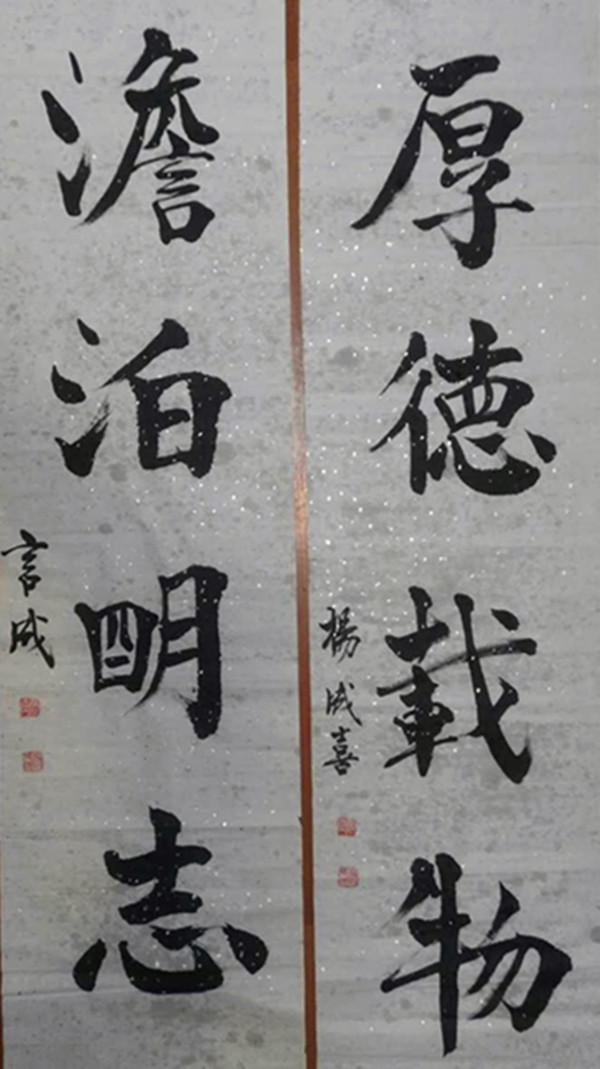 厚德載物
楊成喜
澹泊明志
言成